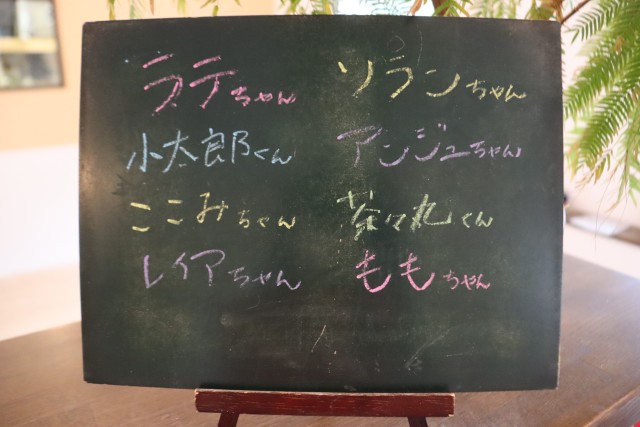 ラテちゃん
ソランちゃん
小太郎くん
アンジュちゃん
ここみちゃん
茶々丸くん
レイアちゃん
ももちゃん